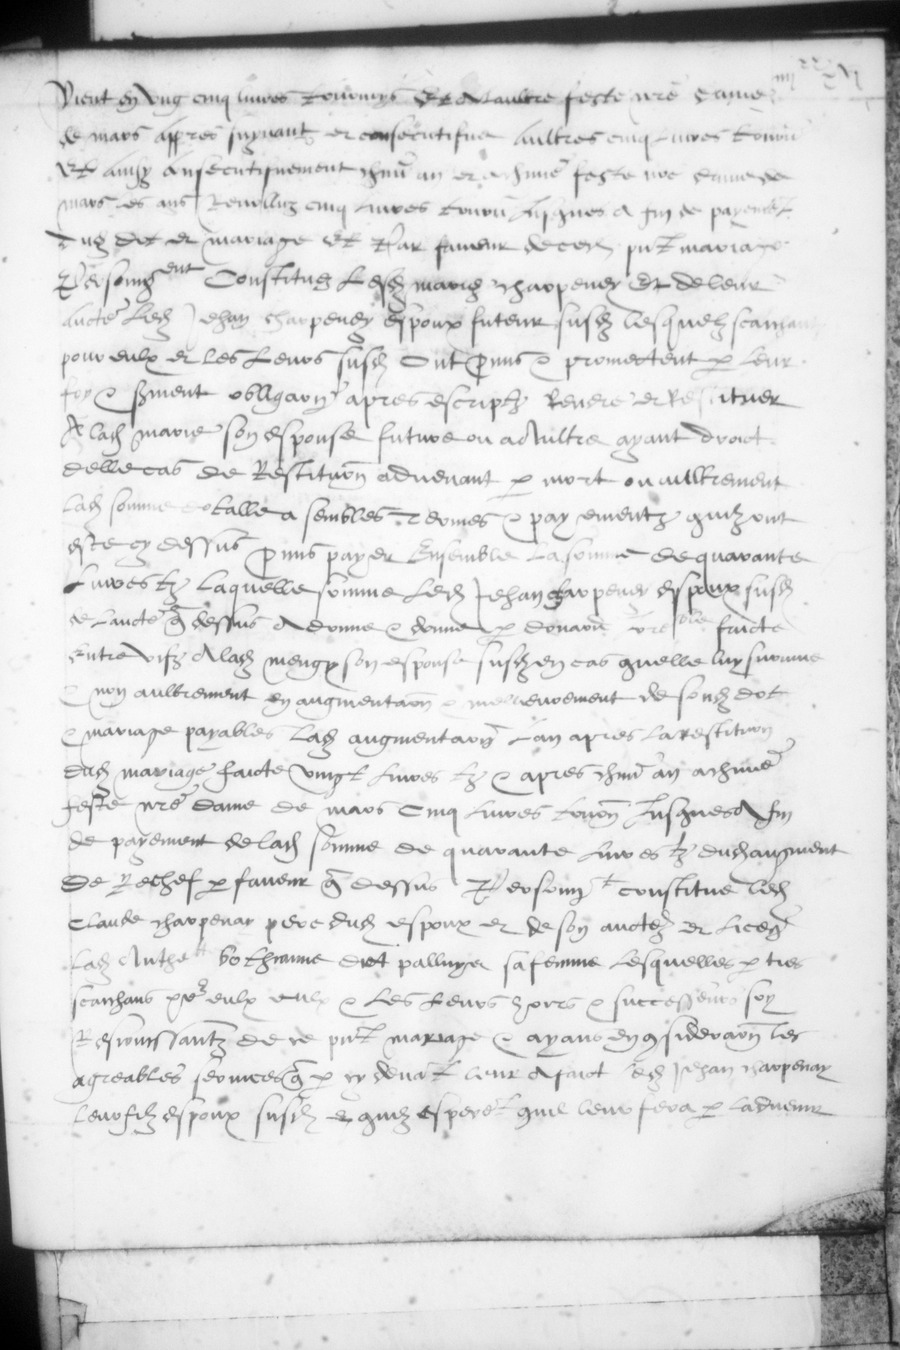 vient en vng cinq livres tournoys Et a laultre feste nre dame
de mars appres suyuant et consecutifue aultres cinq livres tourn
Et ainsy consecutifuement chun an et a chune feste nre dame de
mars les ans Reuolluz cinq livres tourn Jusques a fin de payement
dud dot et mariage Et Par faueur de ce pnt mariage
Personnent Constitué led charpenay Et de leur
aucte led Jehan charpenay espoux futeur susd lesquelz scaichans
pour eulx et les leurs susd Ont promis & promectent p leur
foy & serment obligaon apres escriptz Rendre et Restituer
A lad marie son espouse future ou a aultre ayant droict
delle cas de Restituon aduenant p mort ou aultrement
lad somme dotalle a sembles & payementz quilz ont
este cy dessus promis payer Ensemble la somme de quarante
Livres tz laquelle somme led Jehan charpenay espoux susd
de laucte q dessus A donne & donne p donaon faicte
Entre vifz A lad son espouse susd en cas quelle luy suruiue
& non aultrement en augmentaon & de sond dot
& mariage payables lad augmentaon Lan apres la restituon
dud mariage faicte vingt Livres tz & apres chun an a chune
feste nre dame de mars Cinq Livres tourn Jusques A fin
de payement de lad somme de quarante Livres tz dud augment
De Rechef p faueur q dessus Personnt constitue led
Claude charpenay pere dud espoux et de son aucte et licege
Lad Anthe dict palluyer sa femme Lesquelles pties
scaichans eulx & Les Leurs hoirs & successeurs soy
Resiouissantz de ce pnt mariage & ayans en gsideraon les
agreables seruices q p cy deuat leur A faict led Jehan charpenay
leur filz espoux susd & quilz esperet quil leur fera p laduenir